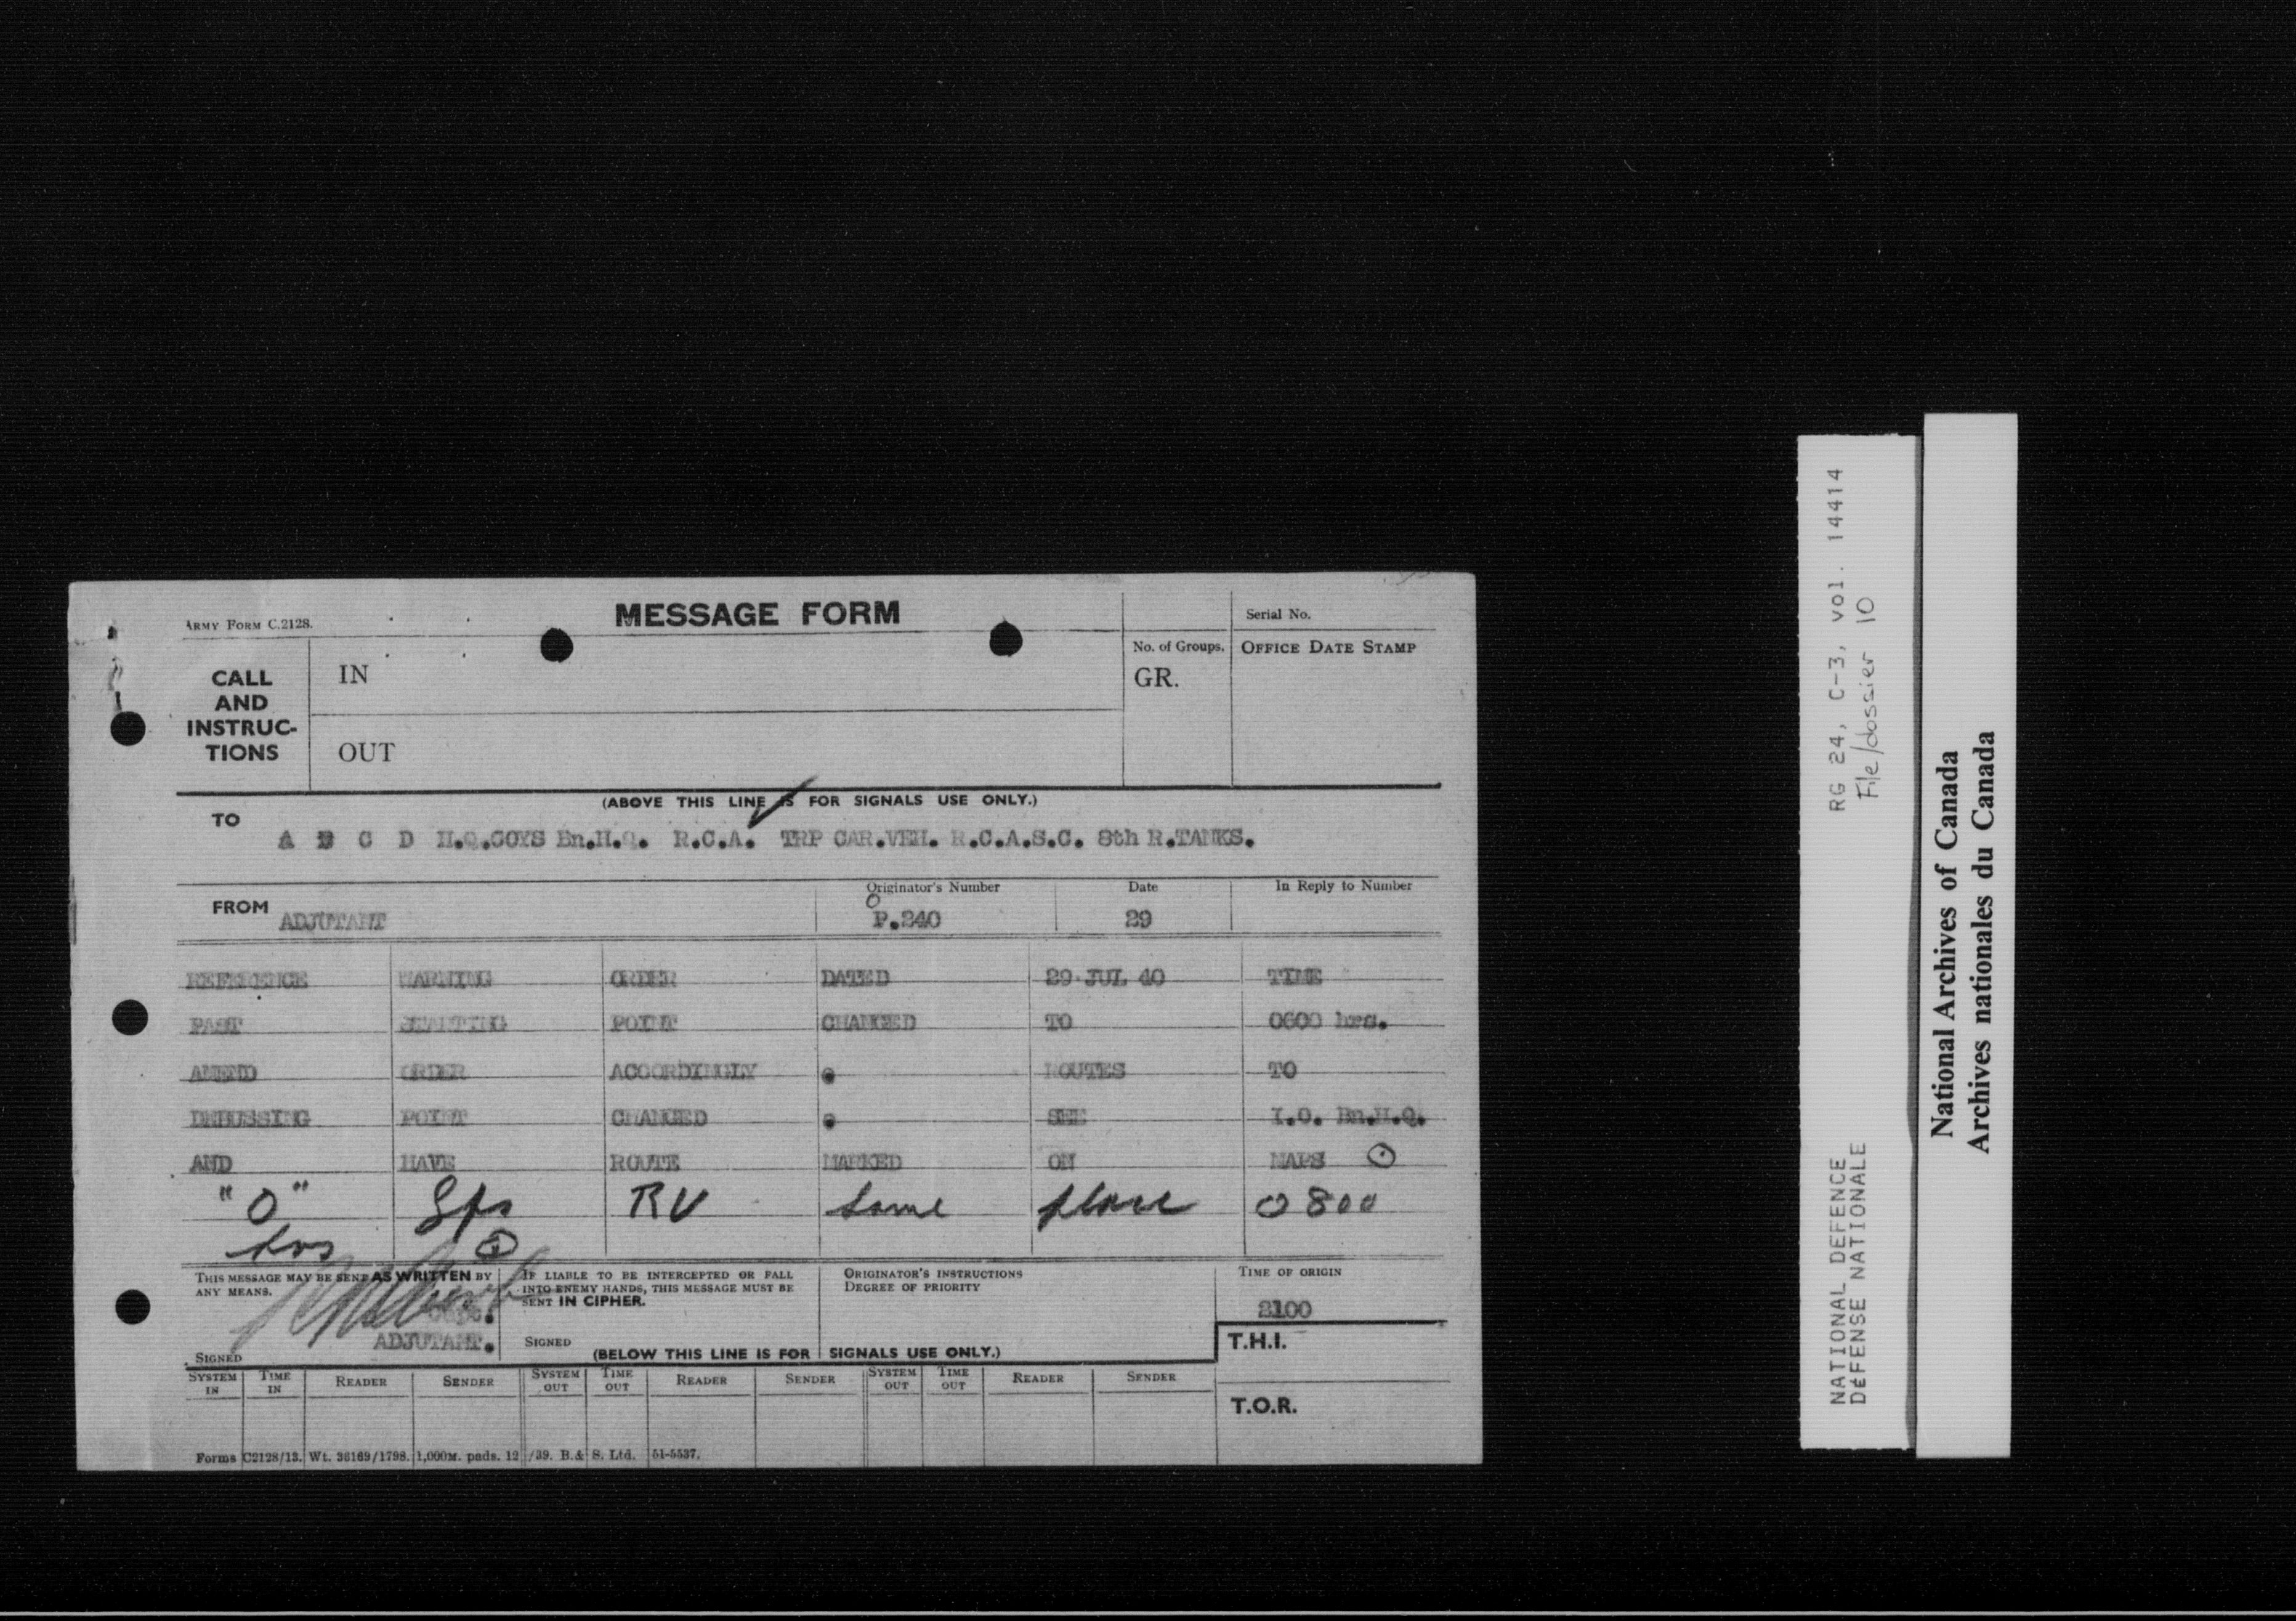 ARMY FORM C.2128.
MESSAGE FORM
Serial No.
CALL AND INSTRUC-TIONS
IN
No. of Groups.
GR.
OFFICE DATE STAMP
OUT
(ABOVE THIS LINE IS FOR SIGNALS USE ONLY.)
TO
A B C D H.Q.COYS Bn.H.Q. R.C.A. TRP CAR.VEH. R.C.A.S.C. 8th R.TANKS.
FROM ADJUTANT
Originator's Number
O
P.240
Date
29
In Reply to Number
REFERENCE WARNING ORDER DATED 29 JUL 40 TIME
PAST STARTING POINT CHANGED TO 0600 hrs.
AMEND ORDER ACCORDINGLY . ROUTES TO
DEBUSSING POINT CHANGED . SEE I.O. Bn.H.Q.
AND HAVE ROUTE MARKED ON MAPS ⊙
"O" Gps RV same place 0800
hrs
THIS MESSAGE MAY BE SENT AS WRITTEN BY ANY MEANS.
Capt.
ADJUTANT.
SIGNED
IF LIABLE TO BE INTERCEPTED OR FALL INTO ENEMY HANDS, THIS MESSAGE MUST BE SENT IN CIPHER.
SIGNED
ORIGINATOR'S INSTRUCTIONS
DEGREE OF PRIORITY
TIME OF ORIGIN
2100
(BELOW THIS LINE IS FOR SIGNALS USE ONLY.)
T.H.I.
SYSTEM IN TIME IN READER SENDER SYSTEM OUT TIME OUT READER SENDER SYSTEM OUT TIME OUT READER SENDER
T.O.R.
Forms C2128/13. Wt. 36169/1798. 1,000M. pads. 12/39. B.& S. Ltd. 51-5537.
NATIONAL DEFENCE RG 24, C-3, vol. 14414
DÉFENSE NATIONALE File/dossier 10
National Archives of Canada
Archives nationales du Canada